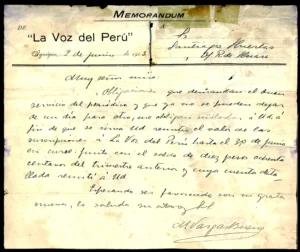 MEMORANDUM
DE
"La Voz del Perú"
Iquique, 2 de junio de 1903
A
S.
Santiago Huertas
Of. Rda. Huara
Muy señor mío:
Obligaciones que demandan el buen
servicio del periódico y que ya no se pueden dejar
de un día para otro, me obligan a Ud. á
fin de que se sirva Ud. remitir el valor de las
suscripciones á La Voz del Perú hasta el 30 de junio
en curso junto con el saldo de diez pesos ochenta
centavos del trimestre anterior y cuya cuenta deta
llada remití á Ud.
Esperando ser favorecido con su grata
nueva, lo saluda su atto. y S.S.
M. Vargas